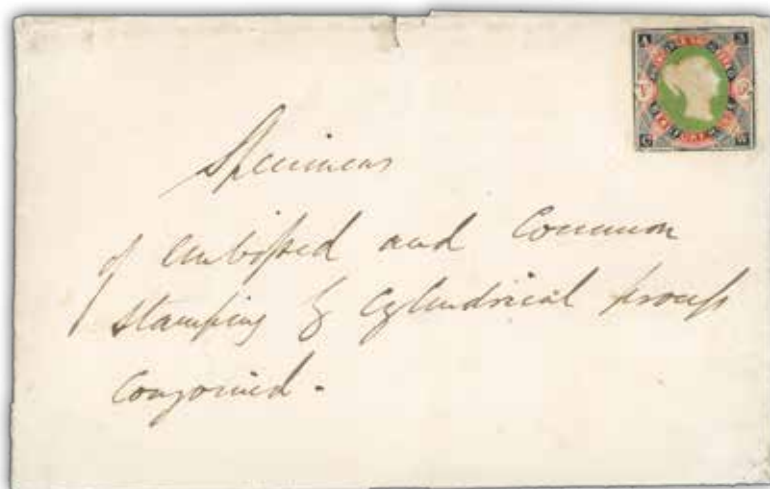 Specimens
of Embossed and Common
Stamping by Cylindrical process
Conjoined.